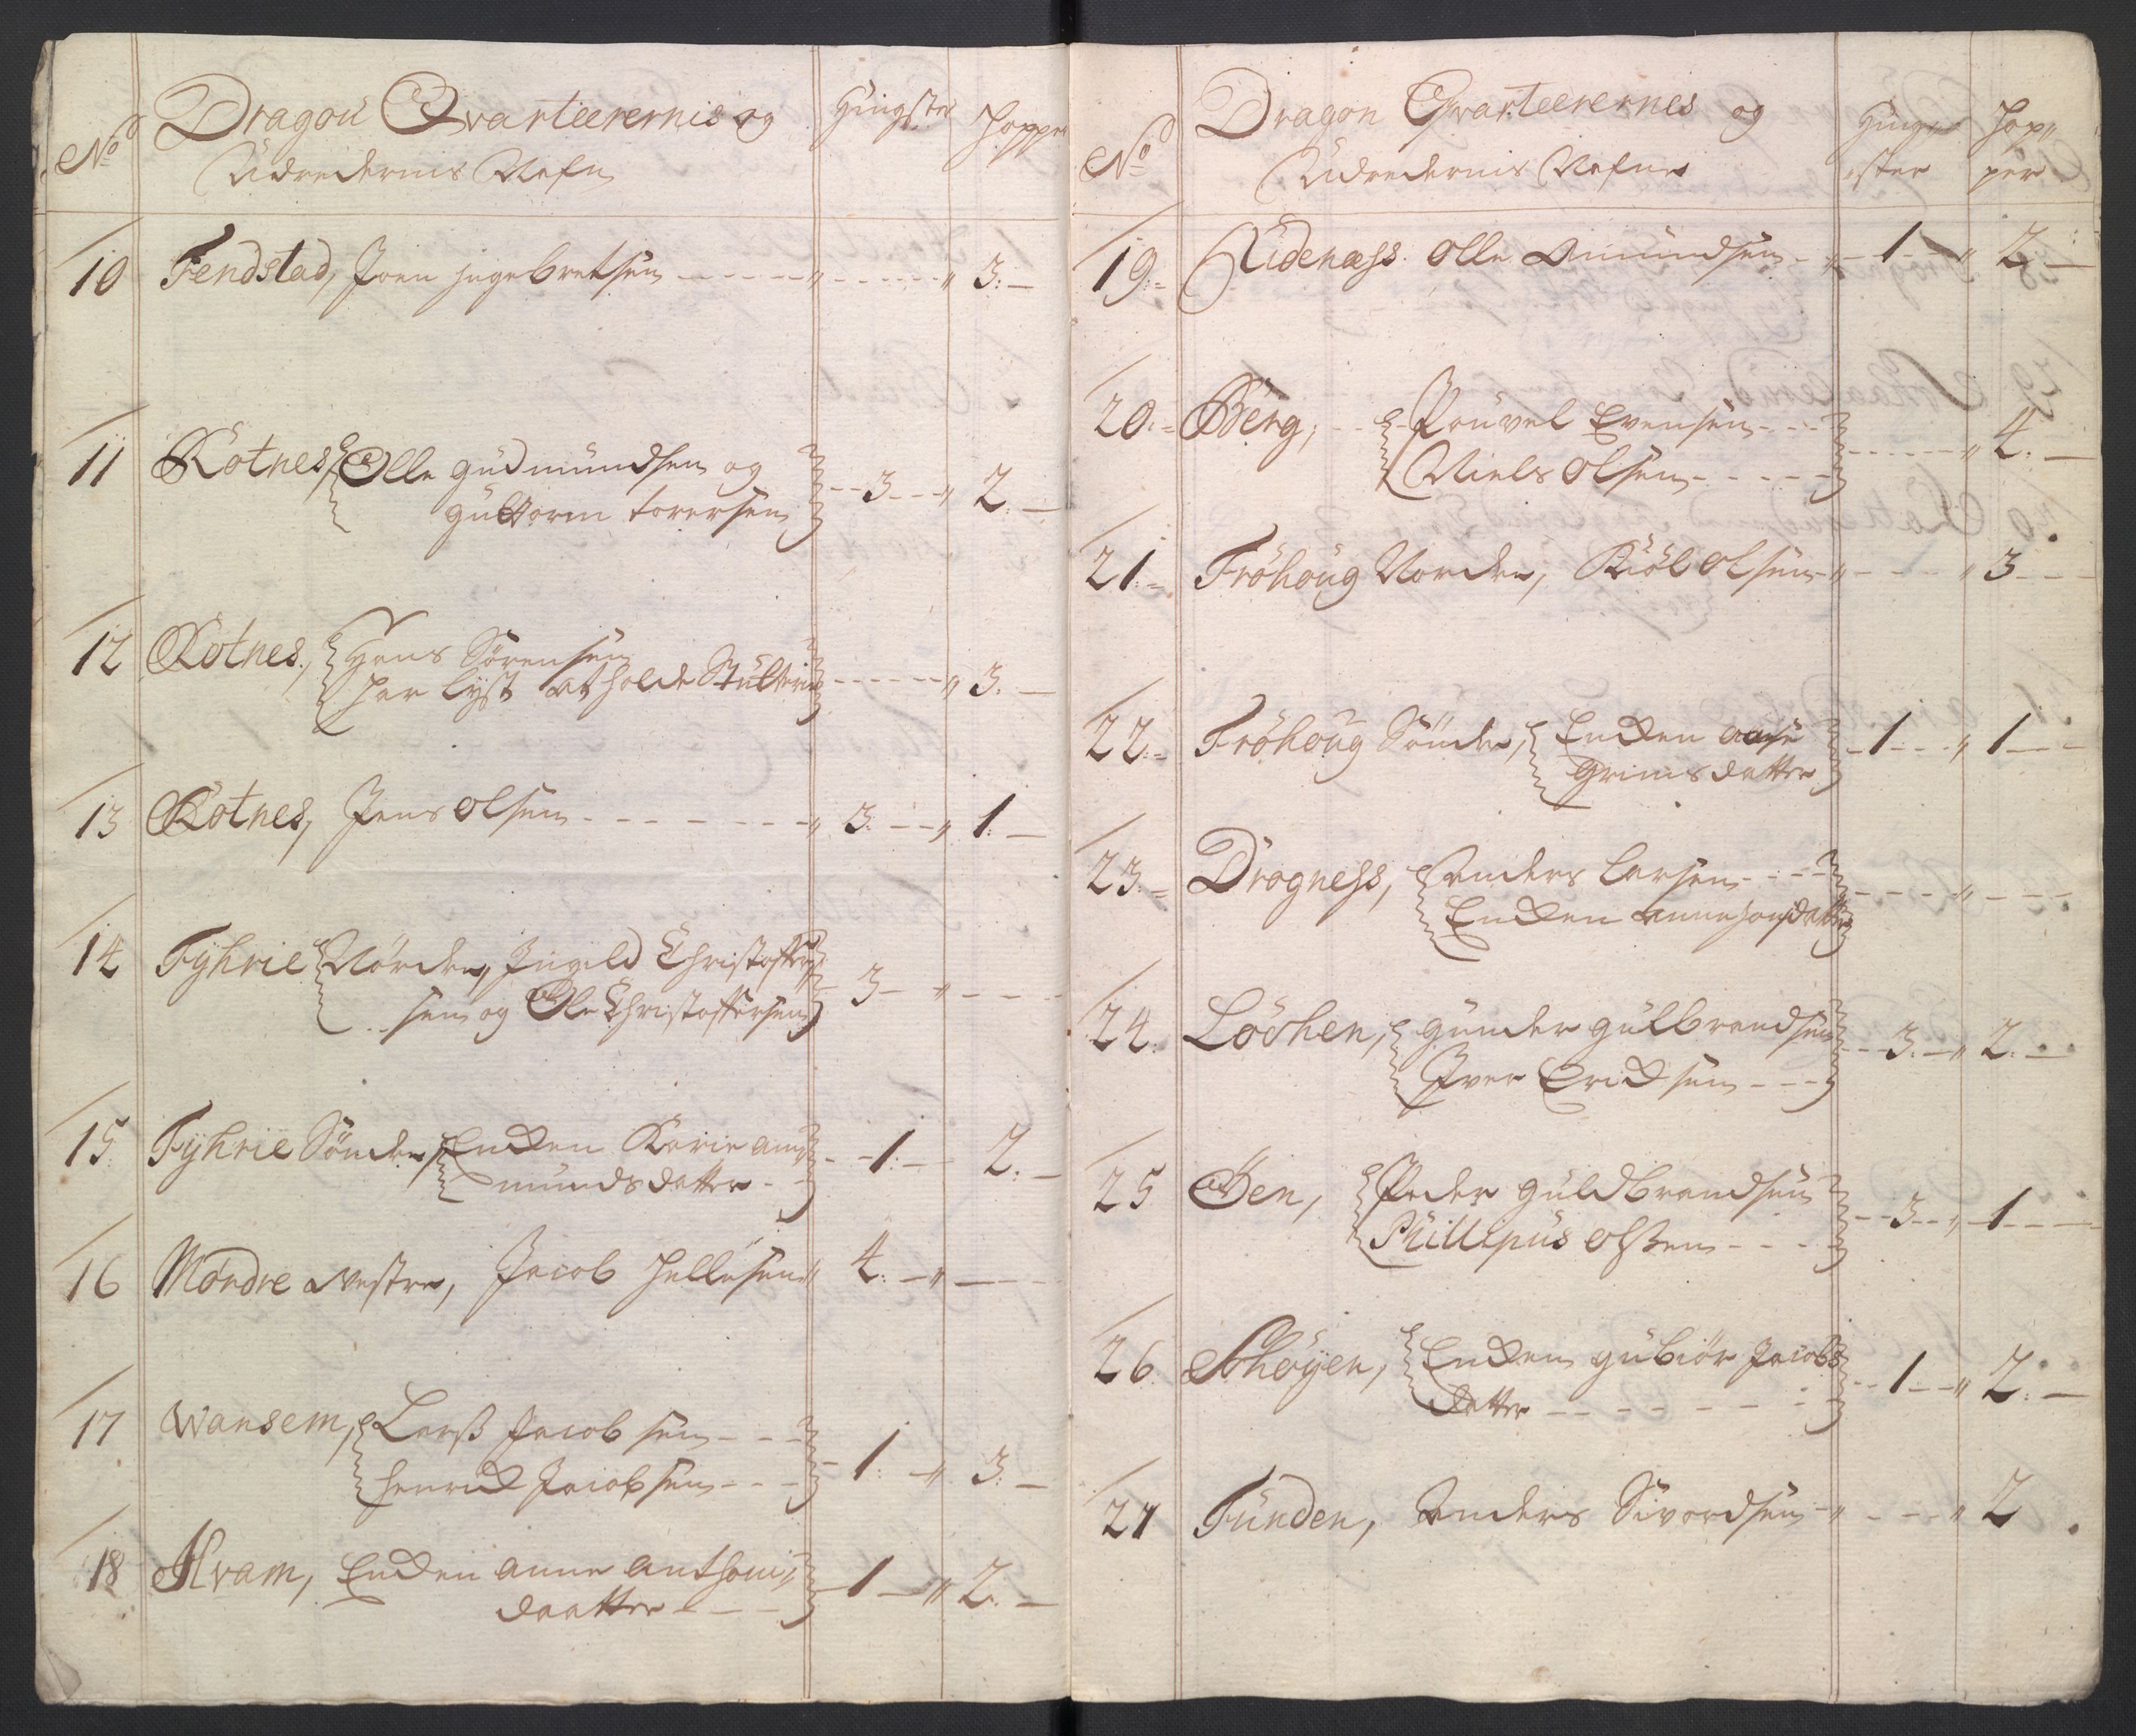 No Dragon Qvarteerernis og Hingster Hopper
Udredernis Nafn
10 Fendstad, Joen Ingebretsen " " 3:
11 Kotnes, Olle Gudmundsen og
Guttorm Torersen 3 " 2.
12 Kotnes, Hans Sörensen
har lyst at holde Stutterie " 3.
13 Kotnes, Jens Olsen " 3. " 1.
14 Fyhrie Nörden, Ingeld Christoffer
sen og Ole Christoffersen 3 "
15 Fyhrie Sönder, Encken Karie Am
munds datter 1. 2.
16 Mordre Westre, Jacob Hellesen " 4. "
17 Wansem, Larss Jacobsen
Henrick Jacobsen 1: " 3.
18 Hvam, Encken Anne Anthoni
daatter 1 " 2.
No Dragon Qvarteerernes og Hing Hop"
Udredernis Nafne ster per
19. Udenæss. Olle Amundsen " 1 " 2.
20. Berg, Pouvel Evensen
Niels Olsen " 4.
21. Fröhoug Norden, Kiöl Olsen " " 3
22. Fröhoug Sönder, Encken Aase
Grims datter 1 " 1
23. Drogness, Anders Larsen
Encken Anne Hansdatter "
24. Löchen, Gunder Gulbrandsen
Iver Ericksen 3. " 2.
25 Ben, Peder Guldbrandsen
Phillipus Olssen 3 " 1
26. Schøyen, Encken Gubiör Jacobs
datter 1 " 2.
27 Funden, Anders Sivordsen " " 2